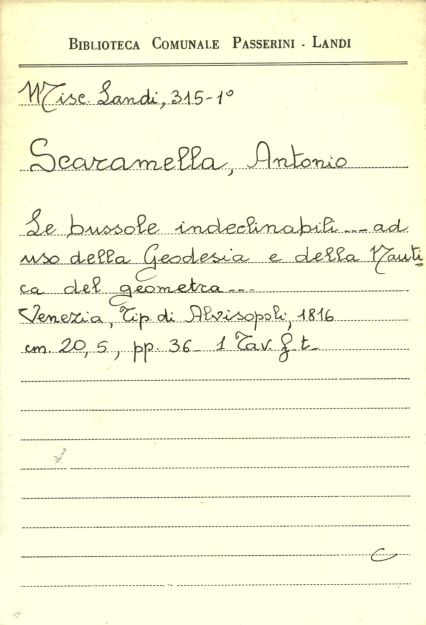 BIBLIOTECA COMUNALE PASSERINI - LANDI
Misc. Landi, 315-1°
Scaramella, Antonio
Le bussole indeclinabili --- ad
uso della Geodesia e della Nauti-
ca del geometra ---
Venezia, Tip di Alvisopoli, 1816
cm. 20,5, pp. 36 - 1 Tav. f. t.
C